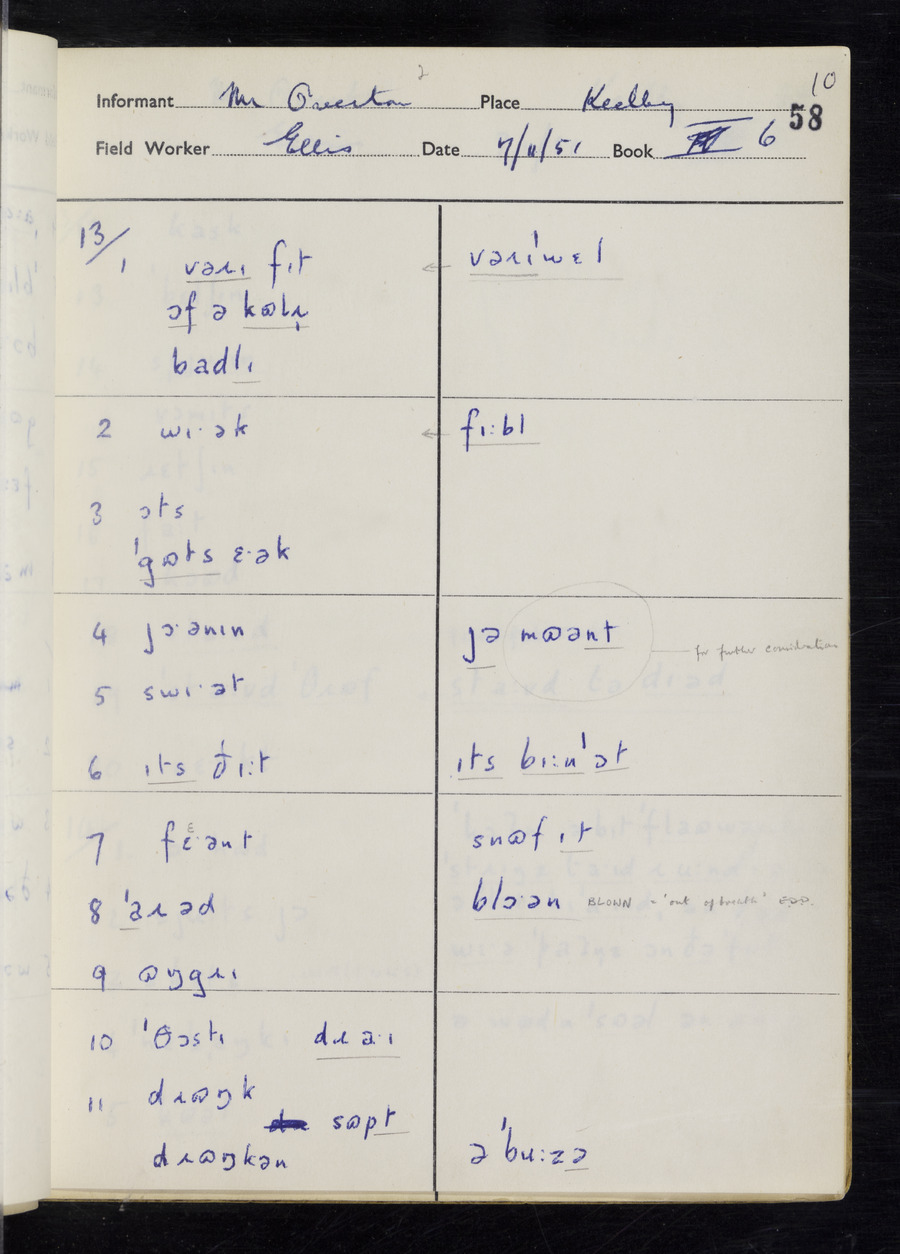 10
2
Informant Mr Overton Place Keelby 58
Field Worker Ellis Date 7/11/51 Book 6
13/
1 vəɹɪ fɪt vəɹɪˈwɛl
ɔf ə kɷlɹ̩
badlɪ
2 wɪ·ək fɪːbl
3 ɔts
ˈgɷts ɛ·ək
4 jɔ·ənɪn jə mɷənt for further consideration
5 swɪ·ət
6 ɪts ðɪːt ɪts bɪːnˈət
7 fɛ·ənt snɷf ɪt
8 ˈaɹəd blɔən BLOWN = 'out of breath' EDD.
9 ɷŋgɹɪ
10 ˈθɔstɪ dɹa·ɪ
11 dɹɷŋk
sɷpt
dɹɷŋkən əˈbuːzə